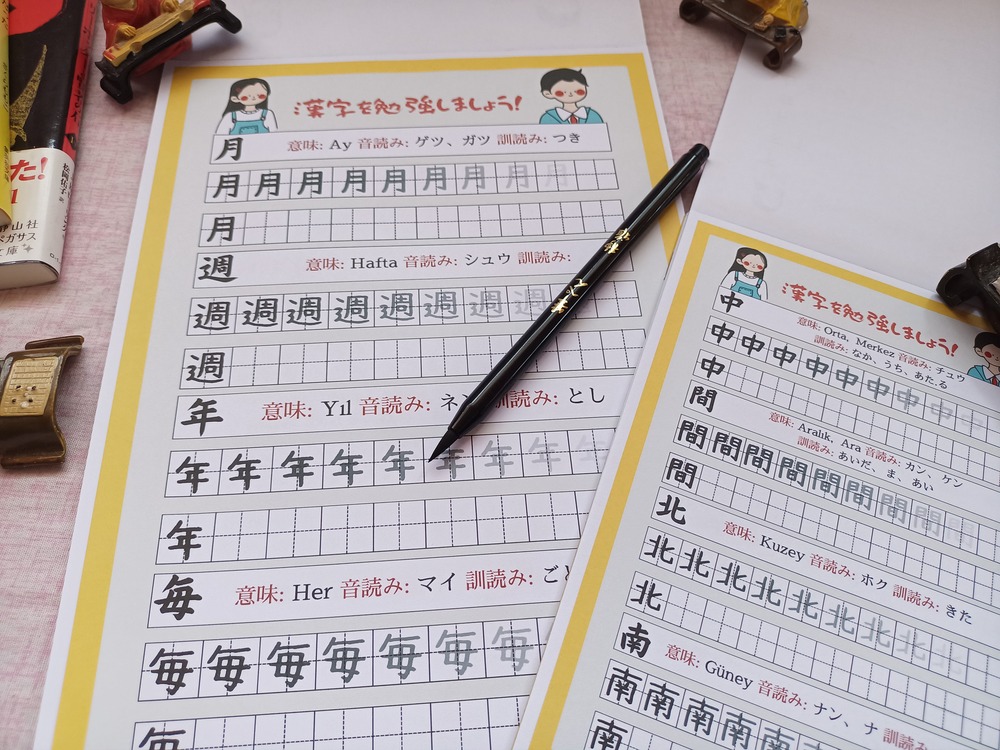 た!
1
山社
ペガサス
文庫
漢字を勉強しましょう!
月 意味: Ay 音読み: ゲツ、ガツ 訓読み: つき
月 月 月 月 月 月 月 月 月
月
週 意味: Hafta 音読み: シュウ 訓読み:
週 週 週 週 週 週 週 週
週
年 意味: Yıl 音読み: ネン 訓読み: とし
年 年 年 年 年 年 年 年 年
年
毎 意味: Her 音読み: マイ 訓読み: ごと
毎 毎 毎 毎 毎 毎 毎
毎
漢字を勉強しましょう!
中 意味: Orta, Merkez 音読み: チュウ
訓読み: なか、うち、あた.る
中 中 中 中 中 中 中 中 中
中
間 意味: Aralık, Ara 音読み: カン、ケン
訓読み: あいだ、ま、あい
間 間 間 間 間 間 間 間 間
間
北 意味: Kuzey 音読み: ホク 訓読み: きた
北 北 北 北 北 北 北 北 北
北
南 意味: Güney 音読み: ナン、ナ 訓読み:
南 南 南 南 南 南
南